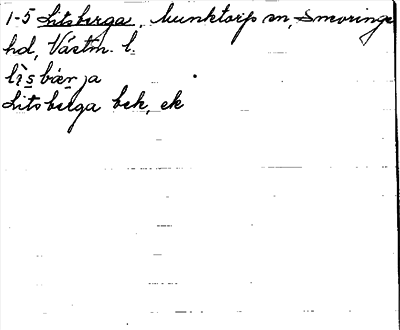 1-5 Litsberga, Munktorps sn, Snevringe
hd, Västm. l.
lìsbærja
Litsberga bek, ek